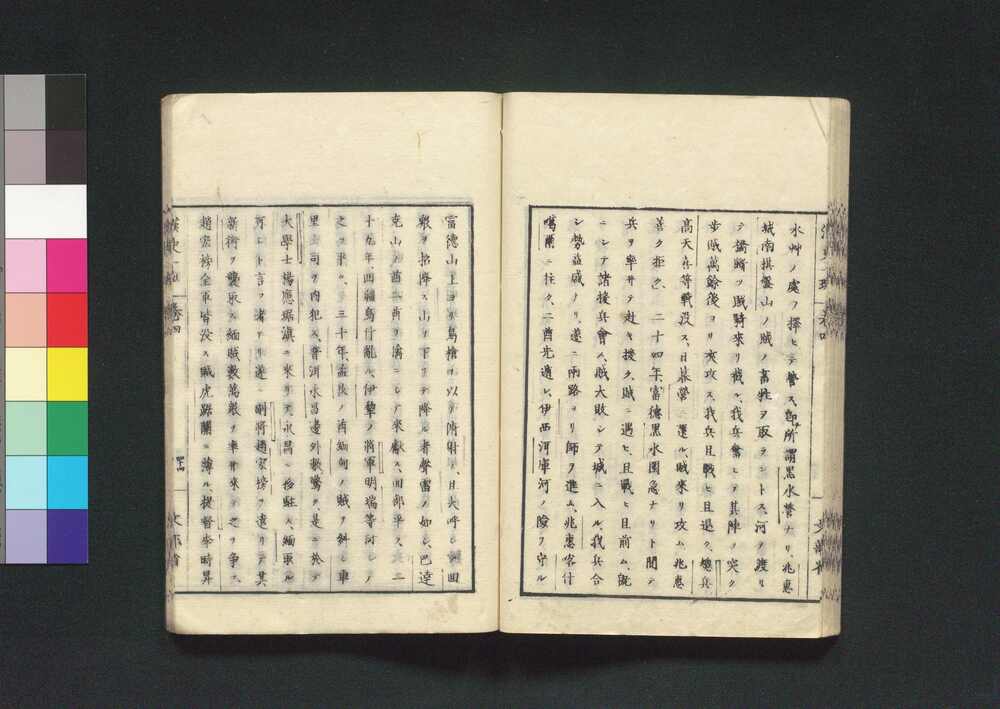 水艸ノ處ヲ擇ヒテ營ス、即所謂黒水營ナリ、兆惠
城南棋盤山ノ賊ノ畜牲ヲ取ラントス、河ヲ渡リ
テ賊騎來リ戰ヒ、我兵奮ヒテ其陣ヲ突ク
步賊萬餘後ヨリ夾攻ス、我兵且戰ヒ且退ク、總兵
高天喜等戰没ス、日暮營ニ還ル、賊來リ攻ム、兆惠
善ク拒ク、二十四年富德黒水圍急ナリト聞テ
兵ヲ率井テ赴キ援ク、賊ニ遇ヒ、且戰ヒ且前ム、既
ニシテ諸援兵會ス、賊大敗シテ城ニ入ル、我兵合
シ勢益盛ナリ、遂ニ兩路ヨリ師ヲ進ム、兆惠喀什
噶爾ニ往ク、二酋先遁レ、伊西洱庫河ノ險ヲ守ル
富德山上ヨリ鳥槍ヲ以テ俯射シ、且大呼シテ回
衆ヲ招降ス、山ヲ下リテ降ル者聲雷ノ如シ、巴達
克山ノ酋二酋ヲ擒ニシテ來獻ス、回部平ク、二
十九年、回輔烏什亂ル、伊犂ノ將軍明瑞等河シテ
之ヲ平ク、三十年、孟艮ノ酋緬甸ノ賊ヲ糾シ車
里土司ヲ内犯ス、普洱永昌邊外歡驚ク、是ニ於テ
大學士楊應琚滇ニ來リテ永昌ニ移駐ス、緬取ル
可シト言フ者アリ、遂ニ副將趙宏榜ヲ遣リテ其
新街ヲ襲取ス、緬賊數萬衆ヲ率井來テ之ヲ爭フ、
趙宏榜全軍皆没ス、賊虎踞關ニ薄ル、提督李時昇